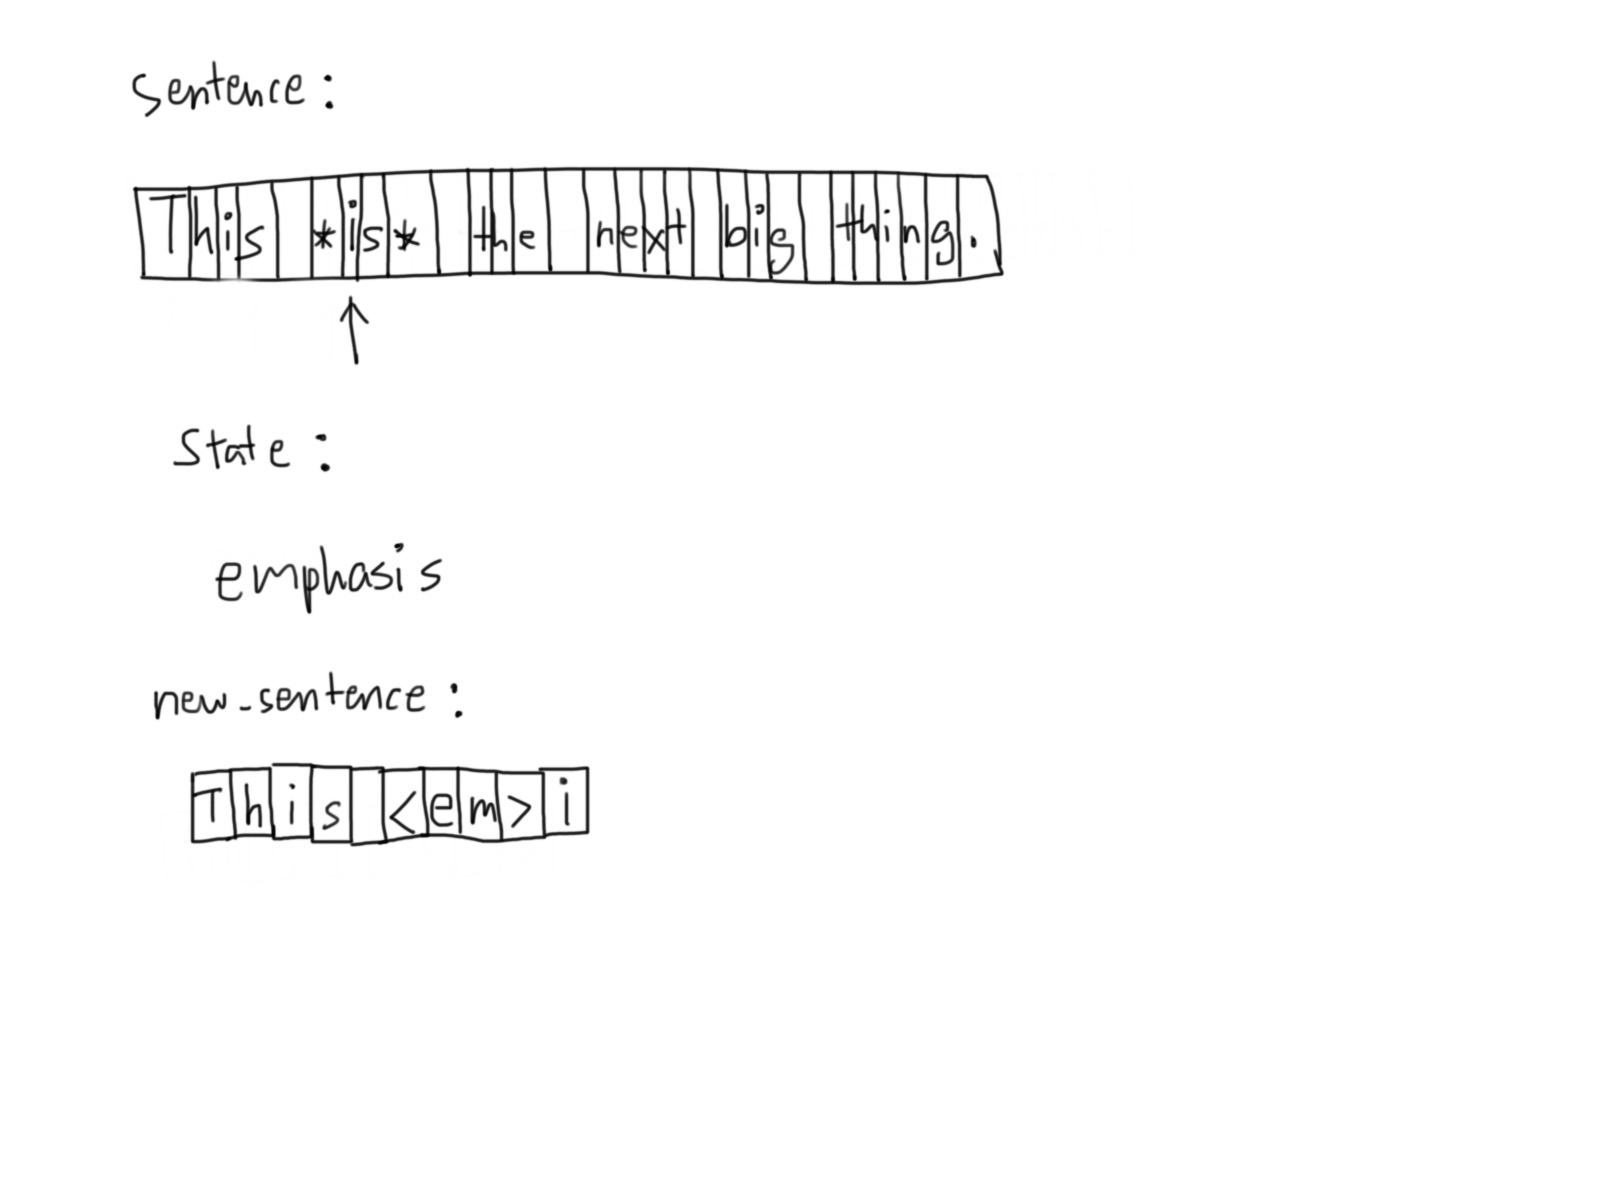 sentence:
This *is* the next big thing.
state:
emphasis
new_sentence:
This <em>i